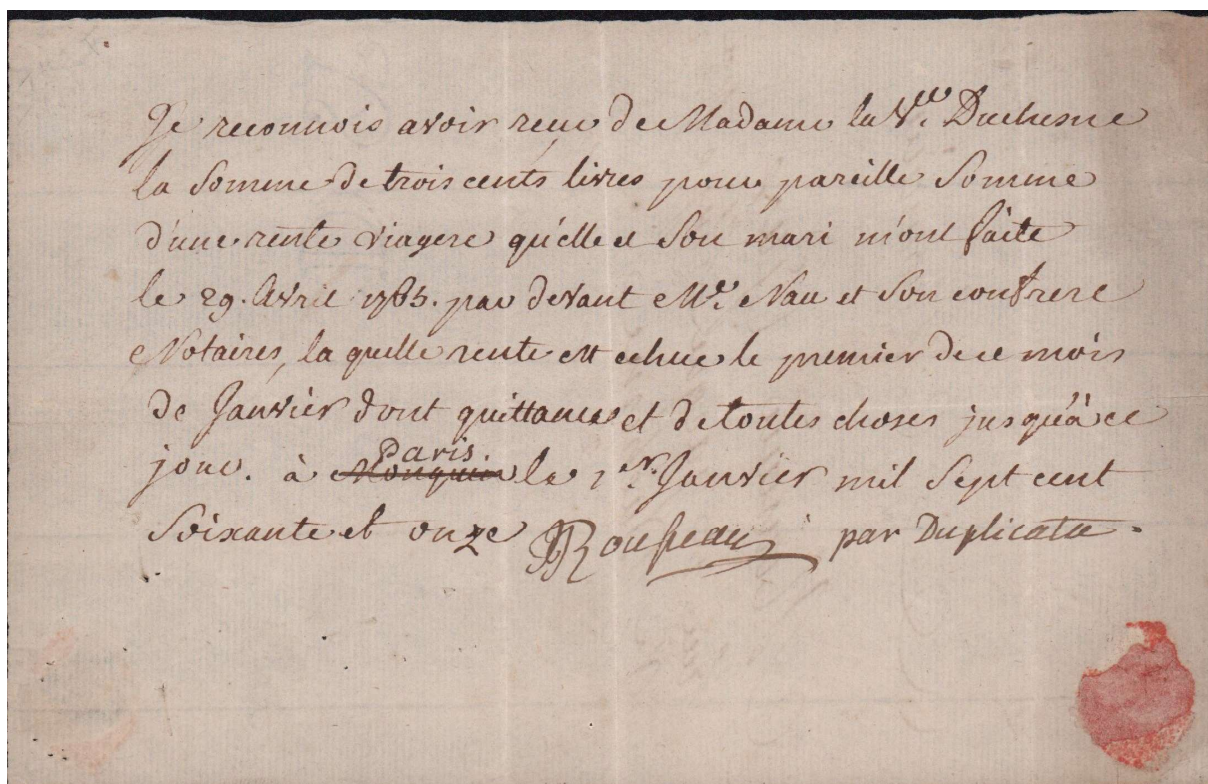 Je reconnois avoir receu de Madame la Vve. Duchesne
la Somme de trois cents livres pour pareille Somme
d'une rente viagere qu'elle et Son mari m'ont faite
le 29. Avril 1765. par devant Me. Nau et Son confrere
Notaires, la quelle rente est echue le premier de ce mois
de Janvier dont quittances et de toutes choses jusqu'à ce
jour. à Paris. Monquin le 1er. Janvier mil Sept cent
Soixante et onze JJRousseau par Duplicata.